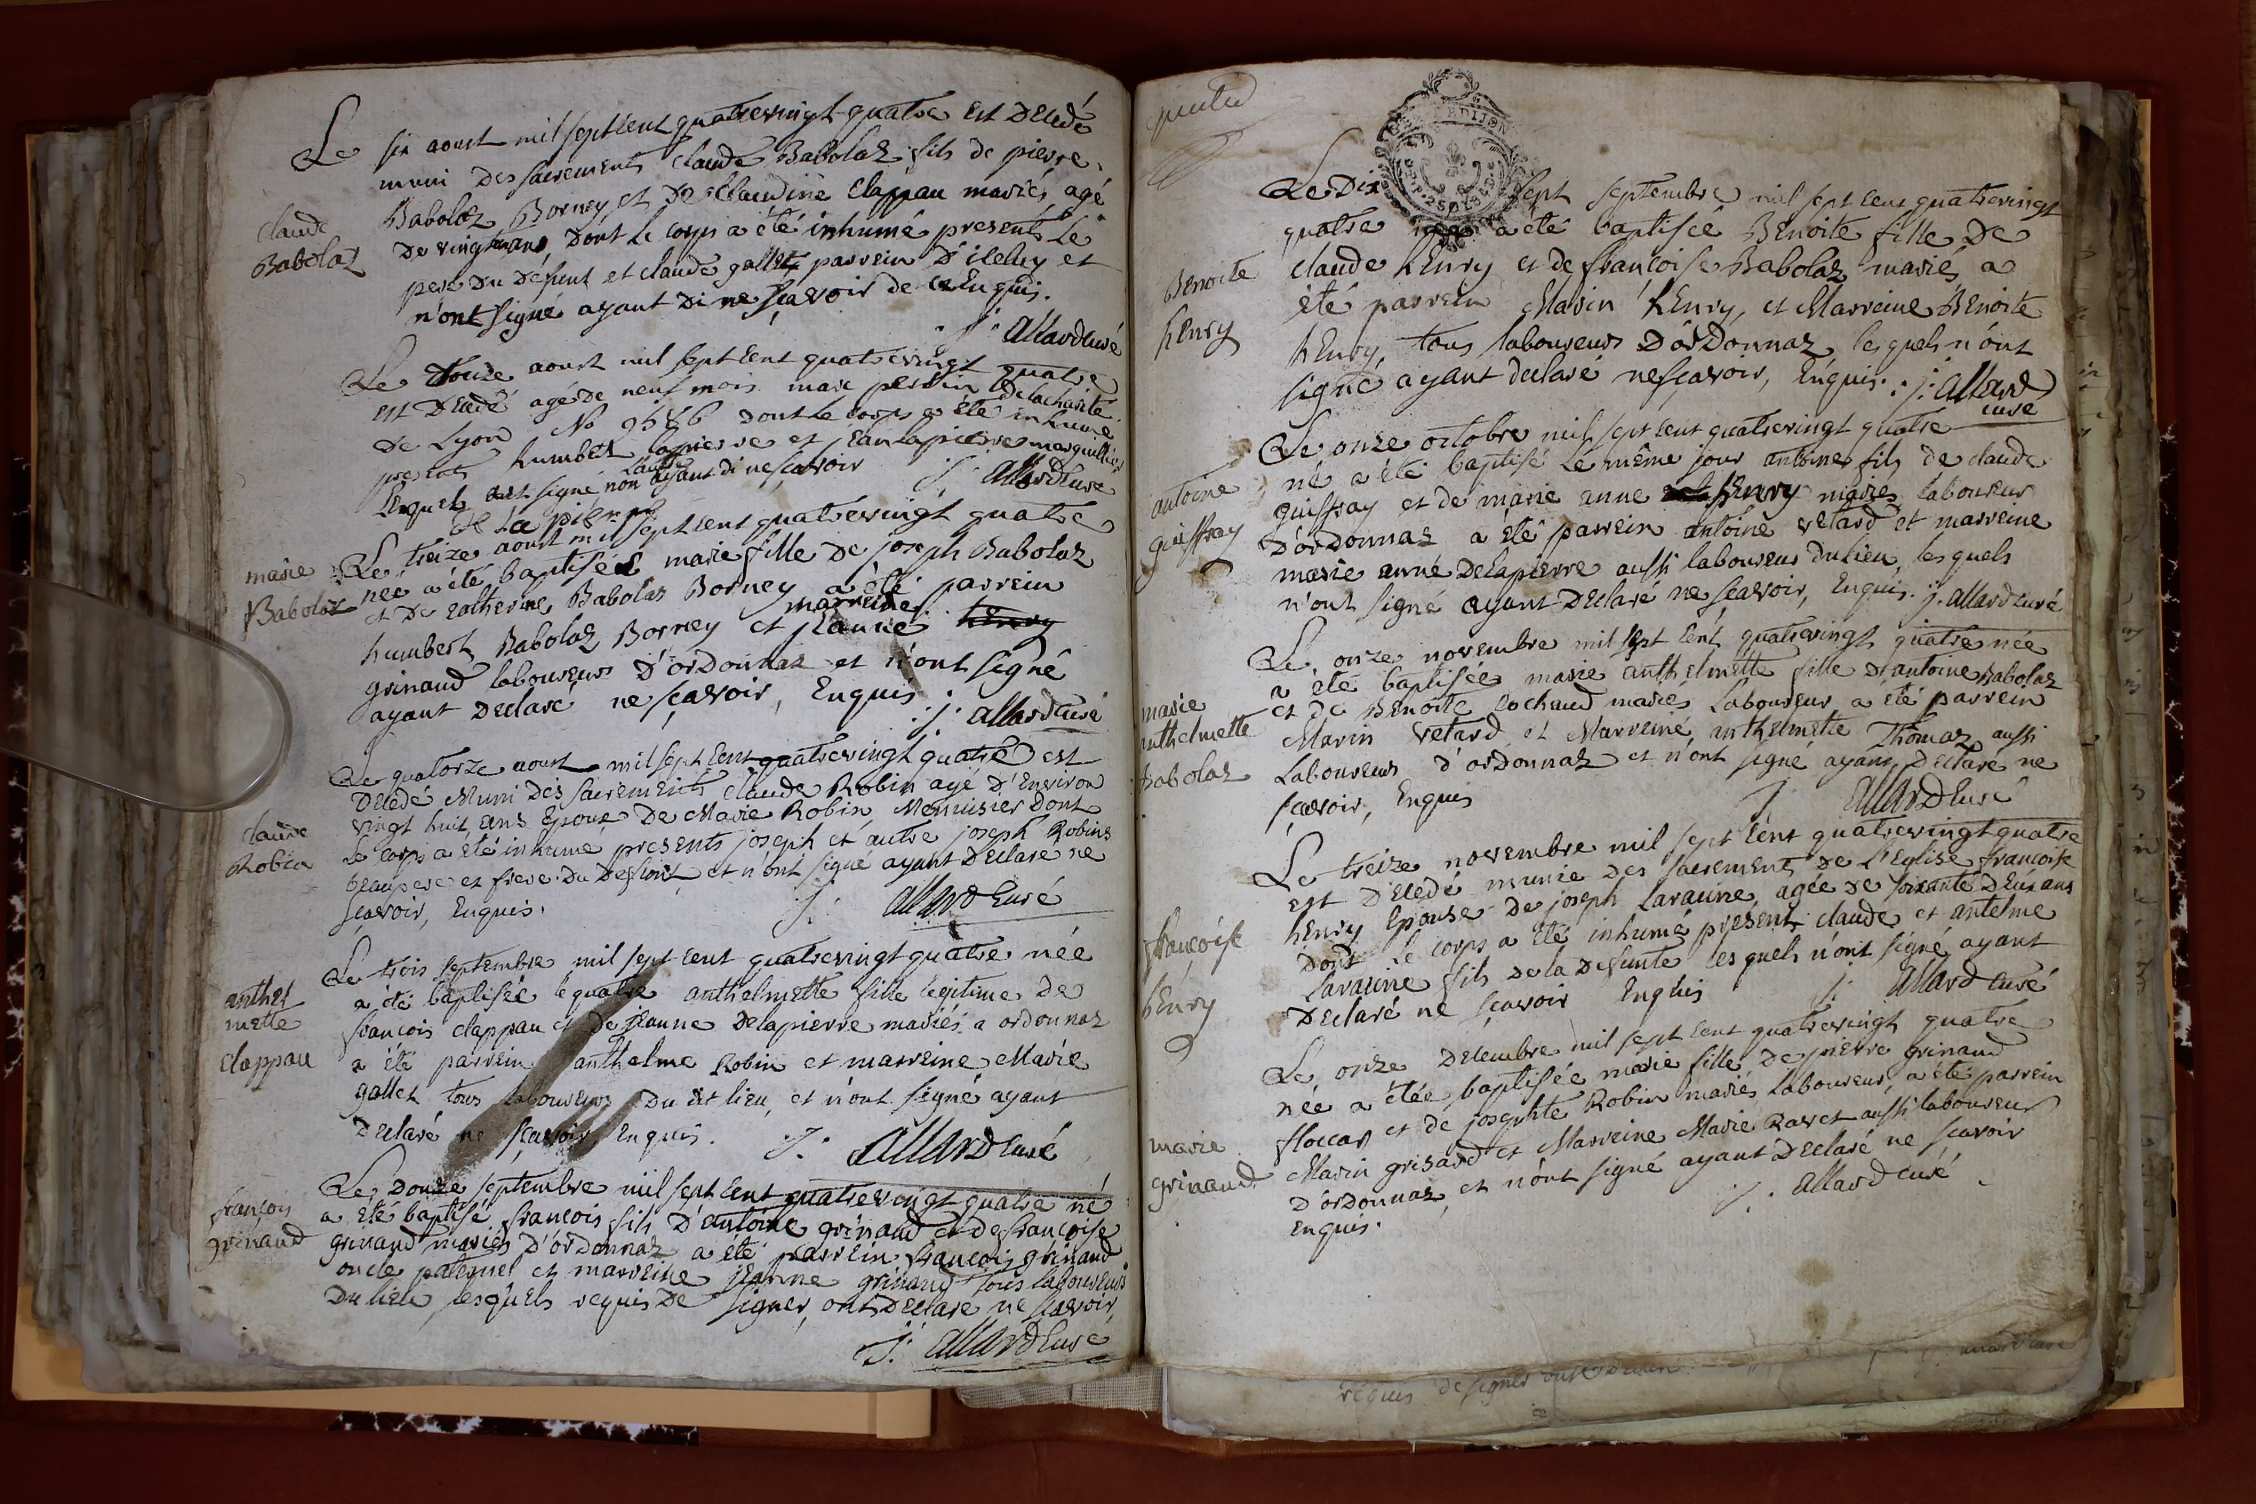 Le six aoust mil sept cent quatrevingt-quatre est decedé
muni des sacrements claude Babolaz fils de pierre
Babolaz Borney et de Claudine Clappau mariés, agé
de vingt ans, dont le corps a été inhumé presents le
pere du defunt et claude gallet parrein d'icelluy et
n'ont signé ayant di ne sçavoir de ce Enquis.
J: allard curé
claude
Babolaz
Le douze aoust mil sept cent quatrevingt quatre
est decedé agé de neuf mois marc perrin de la charité
de Lyon No dont le corps a été inhumé
presents humbert lapierre et jean lapierre marguillier
lequel signé non ayant di ne sçavoir J: allard curé
De La pierre
Le treize aoust mil sept cent quatrevingt quatre
née a été baptisée marie fille de joseph Babolaz
et de catherine Babolaz Borney a été parrein
humbert Babolaz Borney et marreine jeanne henry
grinand laboureurs d'ordonnaz et n'ont signé
ayant declaré ne sçavoir, Enquis. J: allard curé
marie
Babolaz
Le quatorze aoust mil sept cent quatrevingt quatre est
decedé Muni des sacrements claude Robin agé d'Environ
vingt huit ans Epoux de Marie Robin, Menuisier dont
le corps a été inhumé presents joseph et autre joseph Robins
beaupere et frere du deffunt, et n'ont signé ayant declaré ne
sçavoir, Enquis. J: allard curé
claude
Robin
Le trois septembre mil sept cent quatrevingt quatre née
a été baptisée le quatre anthelmette fille legitime de
françois clappau et de jeanne delapierre mariés a ordonnaz
a été parrein anthelme Robin et marreine Marie
gallet tous laboureurs du dit lieu, et n'ont signé ayant
declaré ne sçavoir, Enquis. J: allard curé
anthel
mette
clappau
Le douze septembre mil sept cent quatrevingt quatre né
a été baptisé françois fils d'antoine grinand et de françoise
grinand mariés d'ordonnaz a été parrein françois grinand
oncle paternel et marreine jeanne grinand tous laboureurs
du lieu, lesquels requis de signer, ont declaré ne sçavoir,
J: allard curé
françois
grinand
Le dix sept septembre mil sept cent quatrevingt
quatre née a été baptisée Benoite fille de
claude henry et de françoise Babolaz mariés a
été parrein Marin henry, et Marreine Benoite
henry, tous laboureurs d'ordonnaz, lesquels n'ont
signé ayant declaré ne sçavoir, Enquis. J: allard
curé
Benoite
henry
Le onze octobre mil sept cent quatrevingt quatre
né a été baptisé le même jour antoine fils de claude
guiffray et de marie anne henry mariés laboureur
d'ordonnaz a été parrein antoine vetard et marreine
marie anne delapierre aussi laboureurs du lieu, lesquels
n'ont signé ayant declaré ne sçavoir, Enquis. j. allard curé
antoine
guiffray
Le onze novembre mil sept cent quatrevingt quatre née
a été baptisée marie anthelmette fille d'antoine Babolaz
et de Benoite cochaud mariés Laboureur a été parrein
Marin vetard et Marreine anthelmette Thomaz aussi
Laboureurs d'ordonnaz et n'ont signé ayant declaré ne
sçavoir, Enquis J: allard curé
marie
anthelmette
Babolaz
Le treize novembre mil sept cent quatrevingt quatre
est decedé munie des sacrements de L'Eglise françoise
henry Epouse de joseph Laraine, agée de soixante deux ans
dont le corps a été inhumé present claude et antelme
Laraine fils de la defunte lesquels n'ont signé ayant
declaré ne sçavoir Enquis J: allard curé
françoise
henry
Le onze decembre mil sept cent quatrevingt quatre
née a étée baptisée marie fille de pierre grinand
floccar et de josephte Robin mariés laboureur, a été parrein
Marin grinard et Marreine Marie Ravet aussi laboureur
d'ordonnaz, et n'ont signé ayant declaré ne sçavoir
Enquis. J: allard curé
marie
grinand
requis de signer